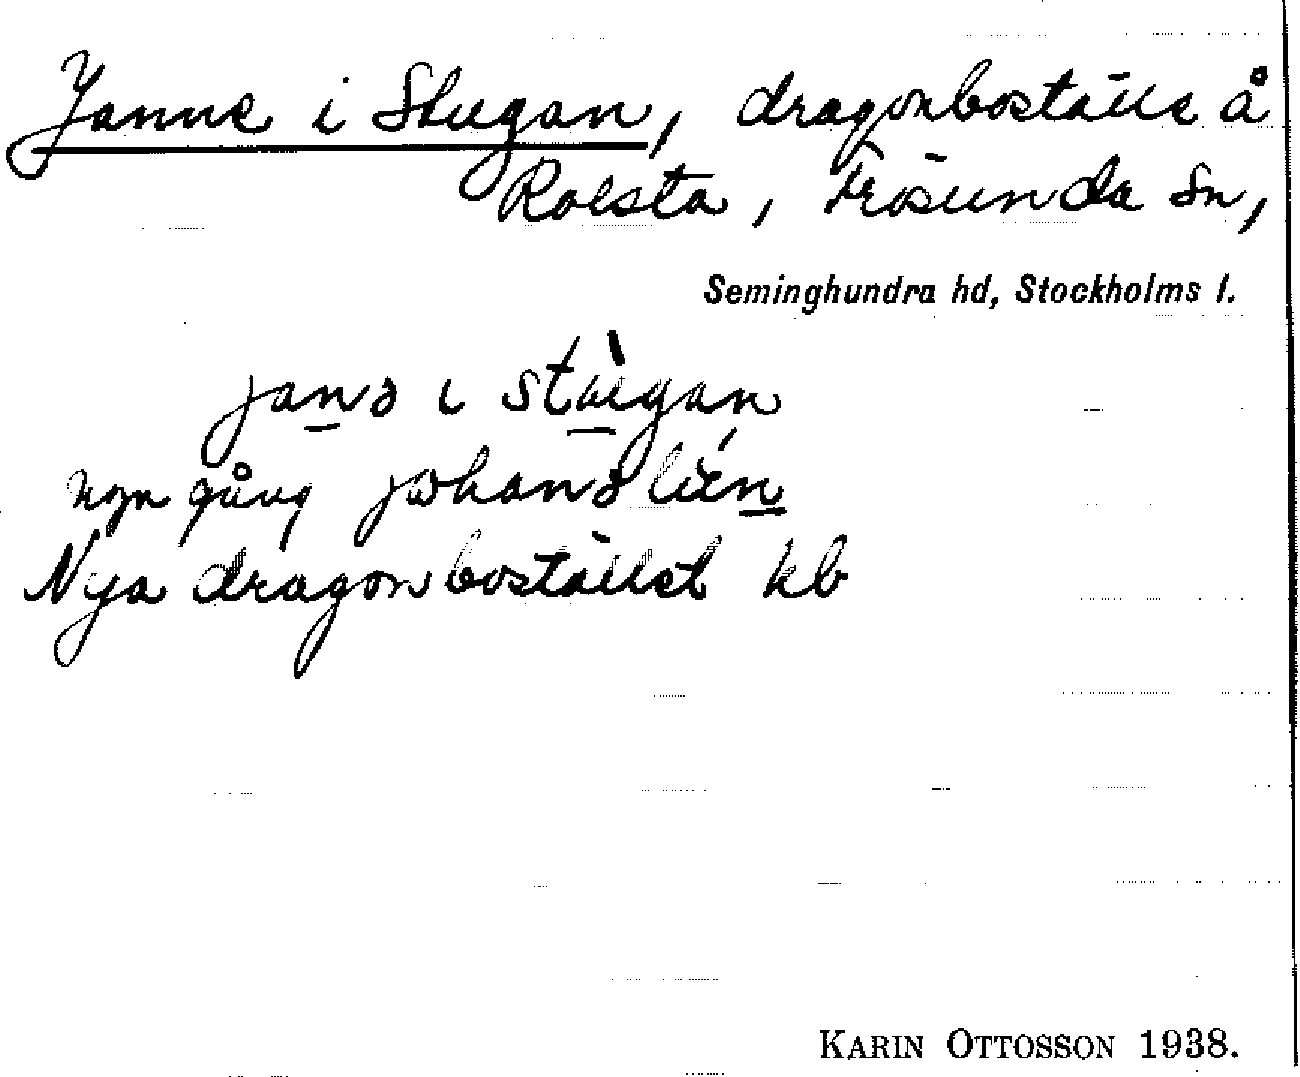 Janne i Stugan, dragonboställe å
Rolsta, Frösunda sn,
Seminghundra hd, Stockholms l.
janə i stùgan
ngn gång johanə lién
Nya dragonbostället kb
KARIN OTTOSSON 1938.